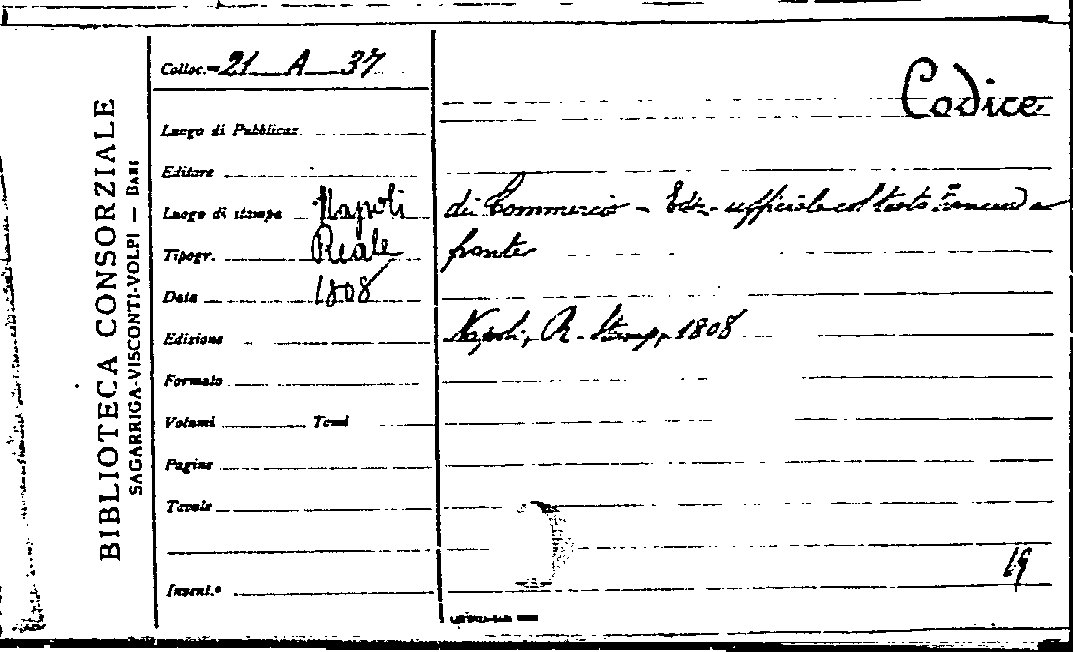 BIBLIOTECA CONSORZIALE
SAGARRIGA-VISCONTI-VOLPI — BARI
Colloc. 21 A 37
Luogo di Pubblicaz.
Editore
Luogo di stampa Napoli
Tipogr. Reale
Data 1808
Edizione
Formato
Volumi Tomi
Pagine
Tavole
Invent.°
Codice
di Commercio - Ediz. ufficiale col testo francese a
fronte
Napoli, R. Stamp, 1808
19